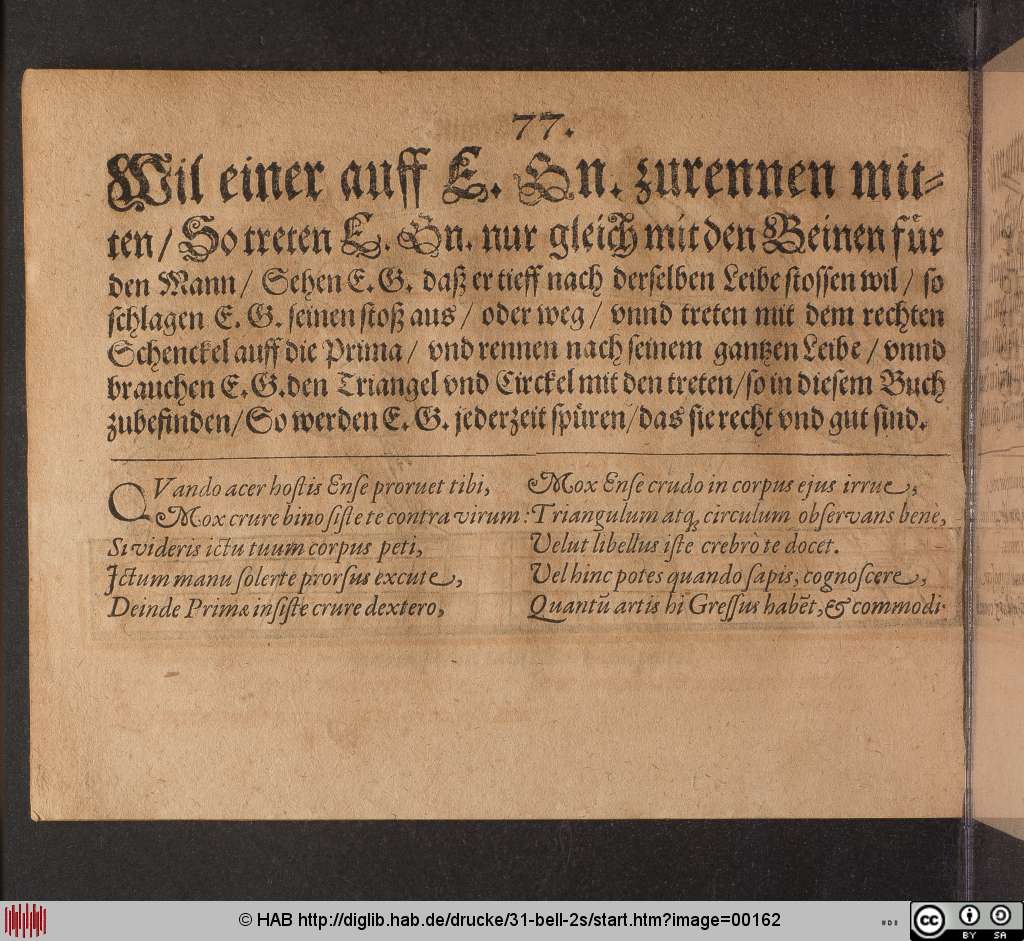 77.
Wil einer auff E. Gn. zurennen mit⸗
ten/ So treten E. Gn. nur gleich mit den Beinen für
den Mann/ Sehen E. G. daß er tieff nach derselben Leibe stossen wil/ so
schlagen E. G. seinen stoß aus/ oder weg/ vnnd treten mit dem rechten
Schenckel auff die Prima/ vnd rennen nach seinem gantzen Leibe/ vnnd
brauchen E. G. den Triangel vnd Circkel mit den treten/ so in diesem Buch
zubefinden/ So werden E. G. jederzeit spüren/ das sie recht vnd gut sind.
QVando acer hostis Ense proruet tibi,
Mox crure bino siste te contra virum:
Si videris ictu tuum corpus peti,
Jctum manu solerte prorsus excute,
Deinde Primæ insiste crure dextero,
Mox Ense crudo in corpus ejus irrue,
Triangulum atq; circulum observans bene,
Velut libellus iste crebrò te docet.
Vel hinc potes quando sapis, cognoscere,
Quantũ artis hi Gressus habẽt, & commodi.
© HAB http://diglib.hab.de/drucke/31-bell-2s/start.htm?image=00162
cc
BY SA